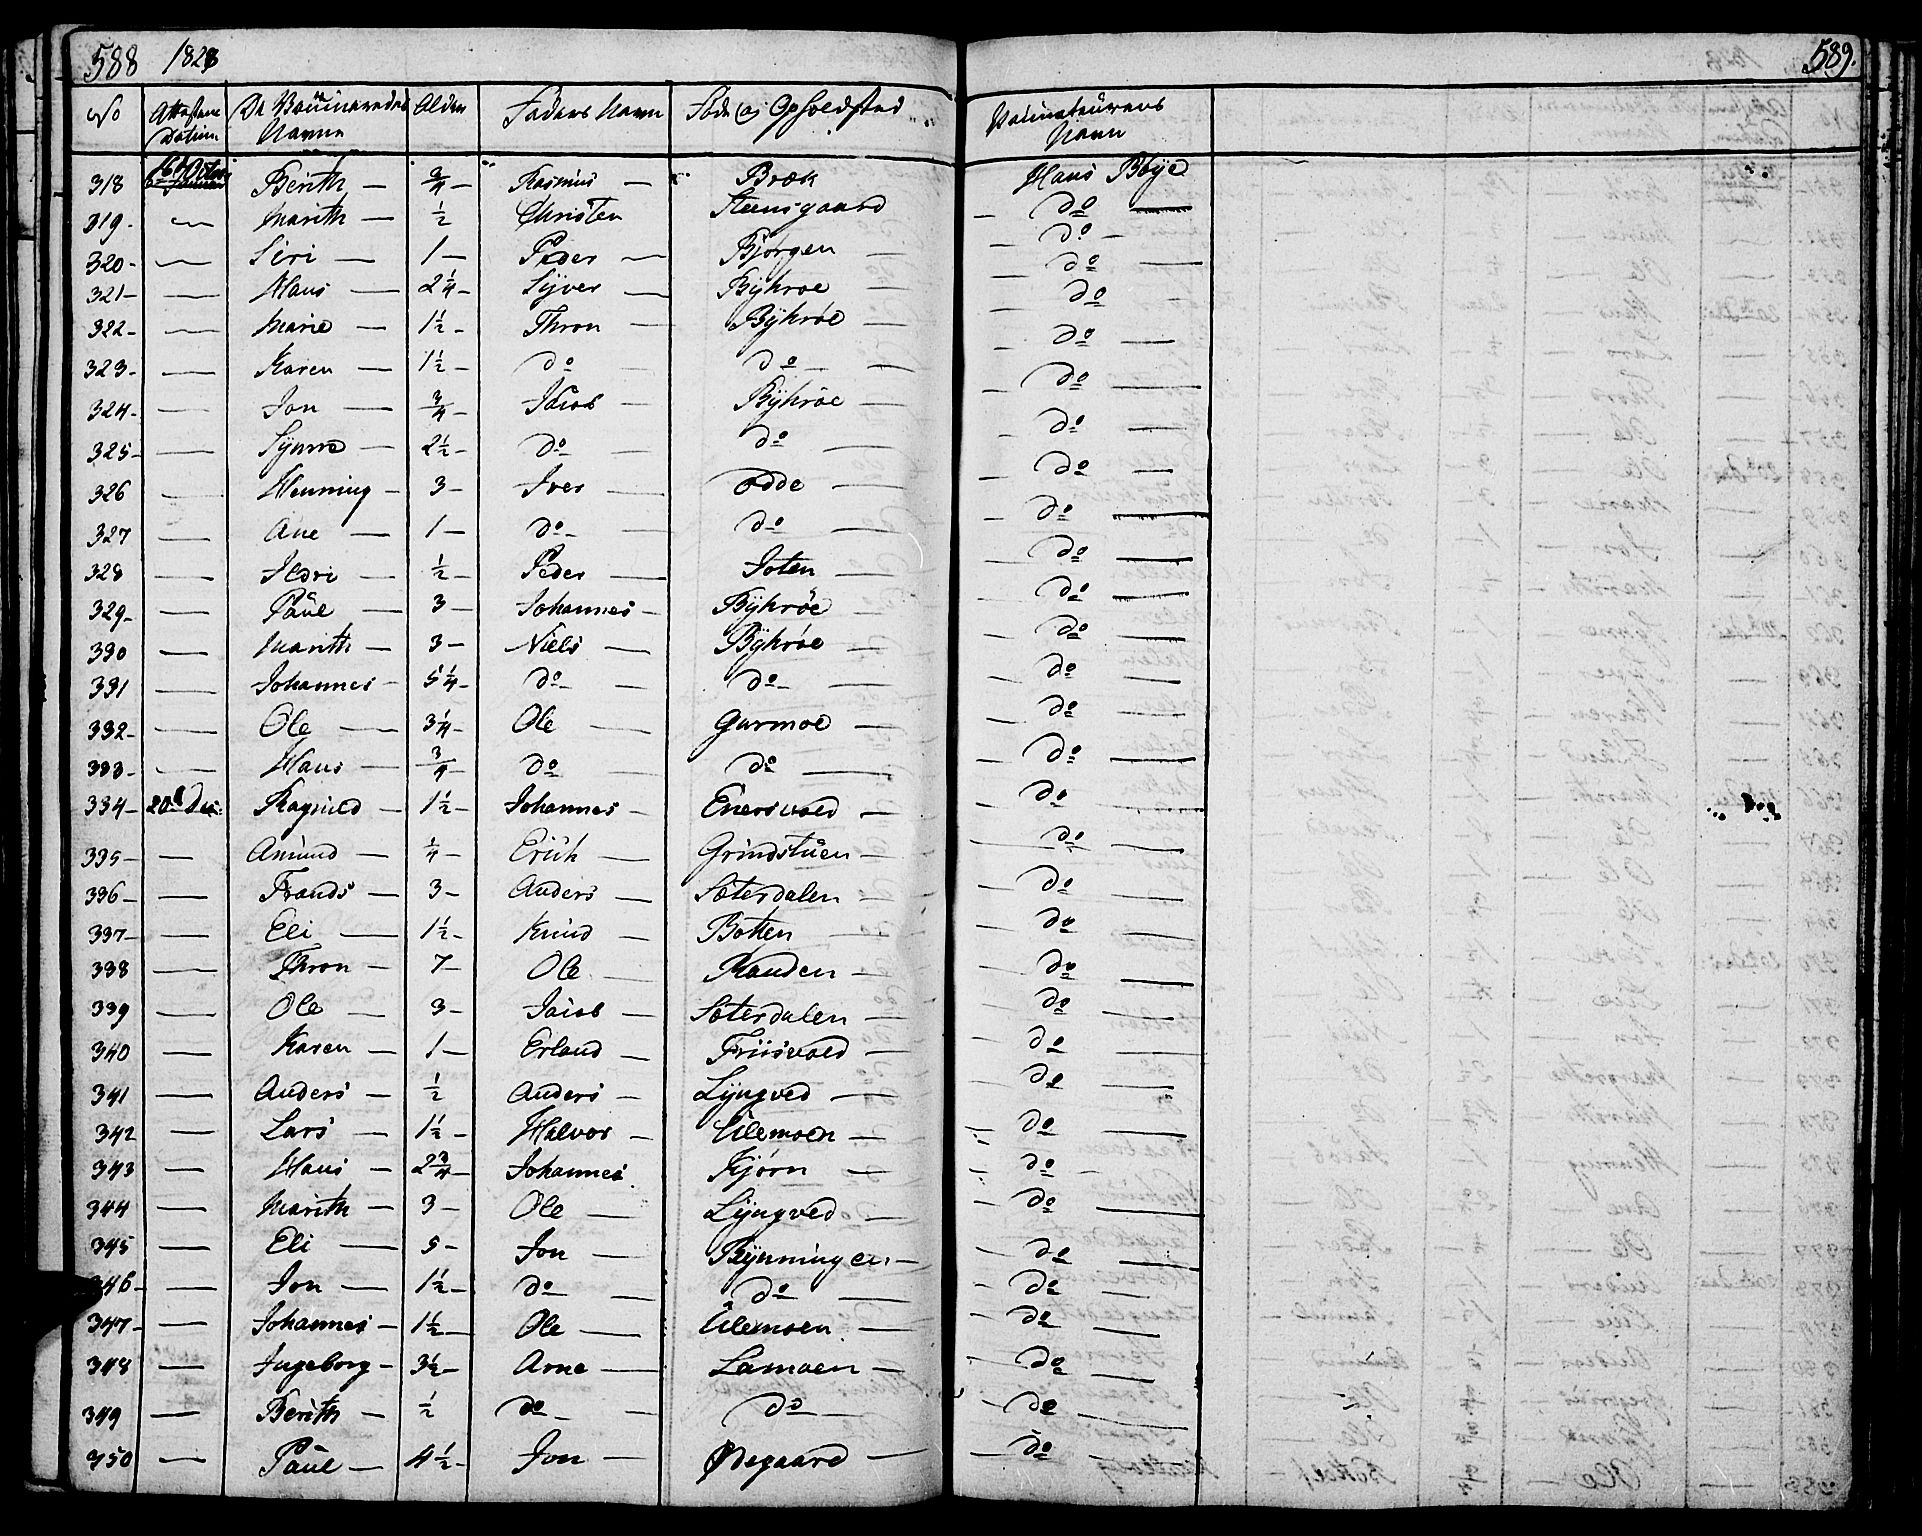 588 1828
589.
No Attestens Datum De Vaccineredes Navne Alder Faders Navn Føde og Opholdsted Vaccinateurens Navn
318 16 Octbr Berith — 3/4 — Rasmus — Bræk Hans Bøye
319 - — Marith — 1/2 Christen Steensgaard — do —
320 - — Siri — 1 — Peder — Bjørgen — do —
321 — — Hans — 2 1/4 - Syver — Byhrøe — do —
322 - — Marie — 1 1/2 - Thron — Byhrøe — do
323 - — Karen — 1 1/2 - do — do — do —
324 - — Jon — 3/4 - Jacob — Byhrøe — do —
325 - — Synnø — 2 1/2 - do — do — do —
326 — Henning - 3 - Iver — Odde — do —
327 — Ane — 1 — do - do — do —
328 — Ildri — 1/2 - Peder — Joten — do —
329 - — Paul — 3 - Johannes - Byhrøe — do —
330 — Marith - 3 - Niels — Byhrøe — do —
331 — Johannes - 5 1/4 - do — do — do —
332 - — Ole — 3 1/4 - Ole — Garmoe — do —
333 - — Hans — 3/4 - do — do — do —
334 - 20 Dec: Ragnild - 1 1/2 - Johannes - Enersvold — do —
335 — — Amund — 1/4 - Erich — Grindstuen — do —
336 — — Frands — 3 - Anders — Sæterdalen — do —
337 — — Eli — 1 1/2 - Knud — Botten — do —
338 — Thron - 7 - Ole — Randen — do —
339 — Ole — 3 - Jacob — Sæterdalen — do —
340 — Karen — 1 — Erland — Friisvold — do —
341 — Anders — 1/2 Anders — Lyngved — do —
342 — Lars — 1 1/2 - Halvor — Ulemoen — do —
343 — Hans — 2 3/4 - Johannes Kjørn — do —
344 — Marith — 3 — Ole — Lyngved — do —
345 — Eli — 5 - Jon — Bynningen — do —
346 - — Jon — 1 1/2 - do — do — do —
347 - — Johannes — 1 1/2 — Ole — Ulemoen — do —
348 — Ingeborg - 3 1/2 - Arne — Lamoen — do —
349 — Berith — 1/2 do — do — do —
350 — Paul — 4 1/2 - Jon — Ødegaard — do —